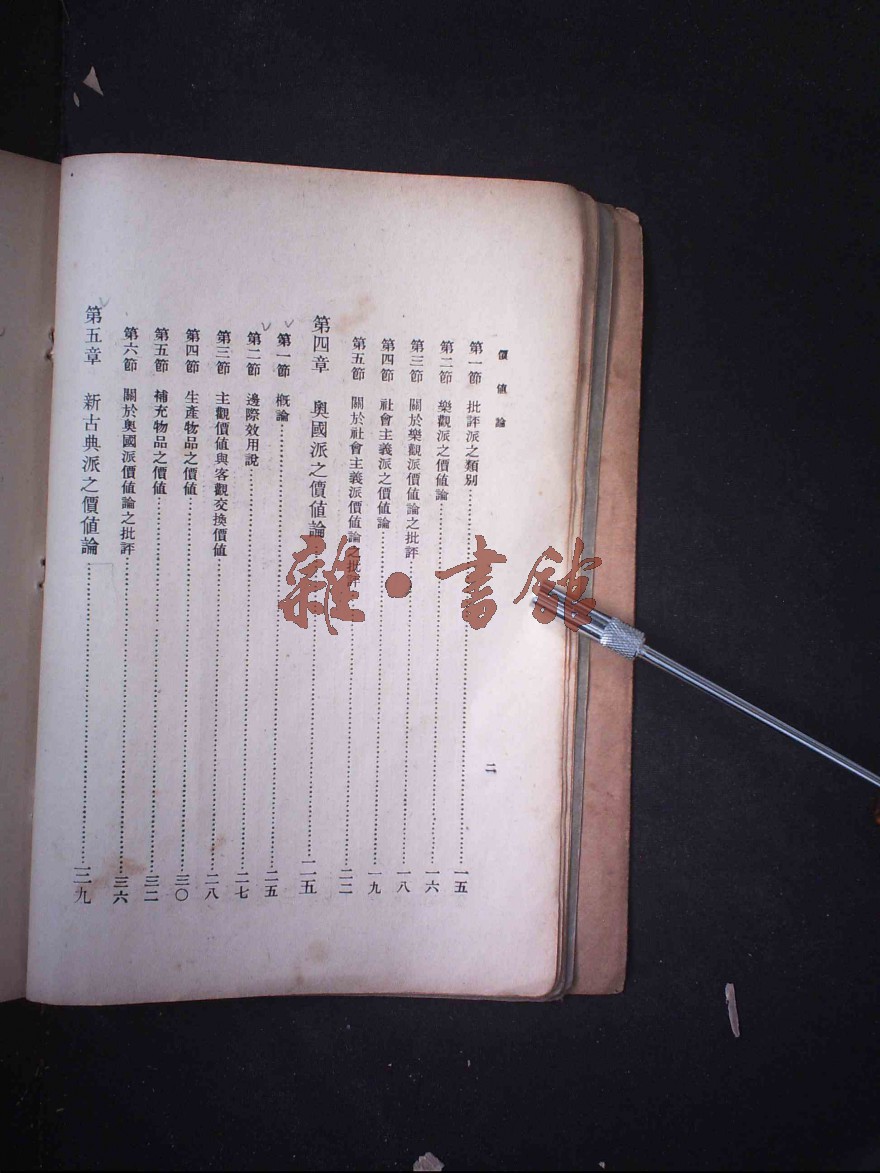 價値論
二
第一節 批評派之類別………一五
第二節 樂觀派之價値論………一六
第三節 關於樂觀派價値論之批評………一八
第四節 社會主義派之價値論………一九
第五節 關於社會主義派價値論之批評………二二
第四章 奧國派之價値論………二五
第一節 槪論………二五
第二節 邊際效用說………二七
第三節 主觀價値與客觀交換價値………二八
第四節 生產物品之價値………三〇
第五節 補充物品之價値………三二
第六節 關於奧國派價値論之批評………三六
第五章 新古典派之價値論………三九
雜·書館